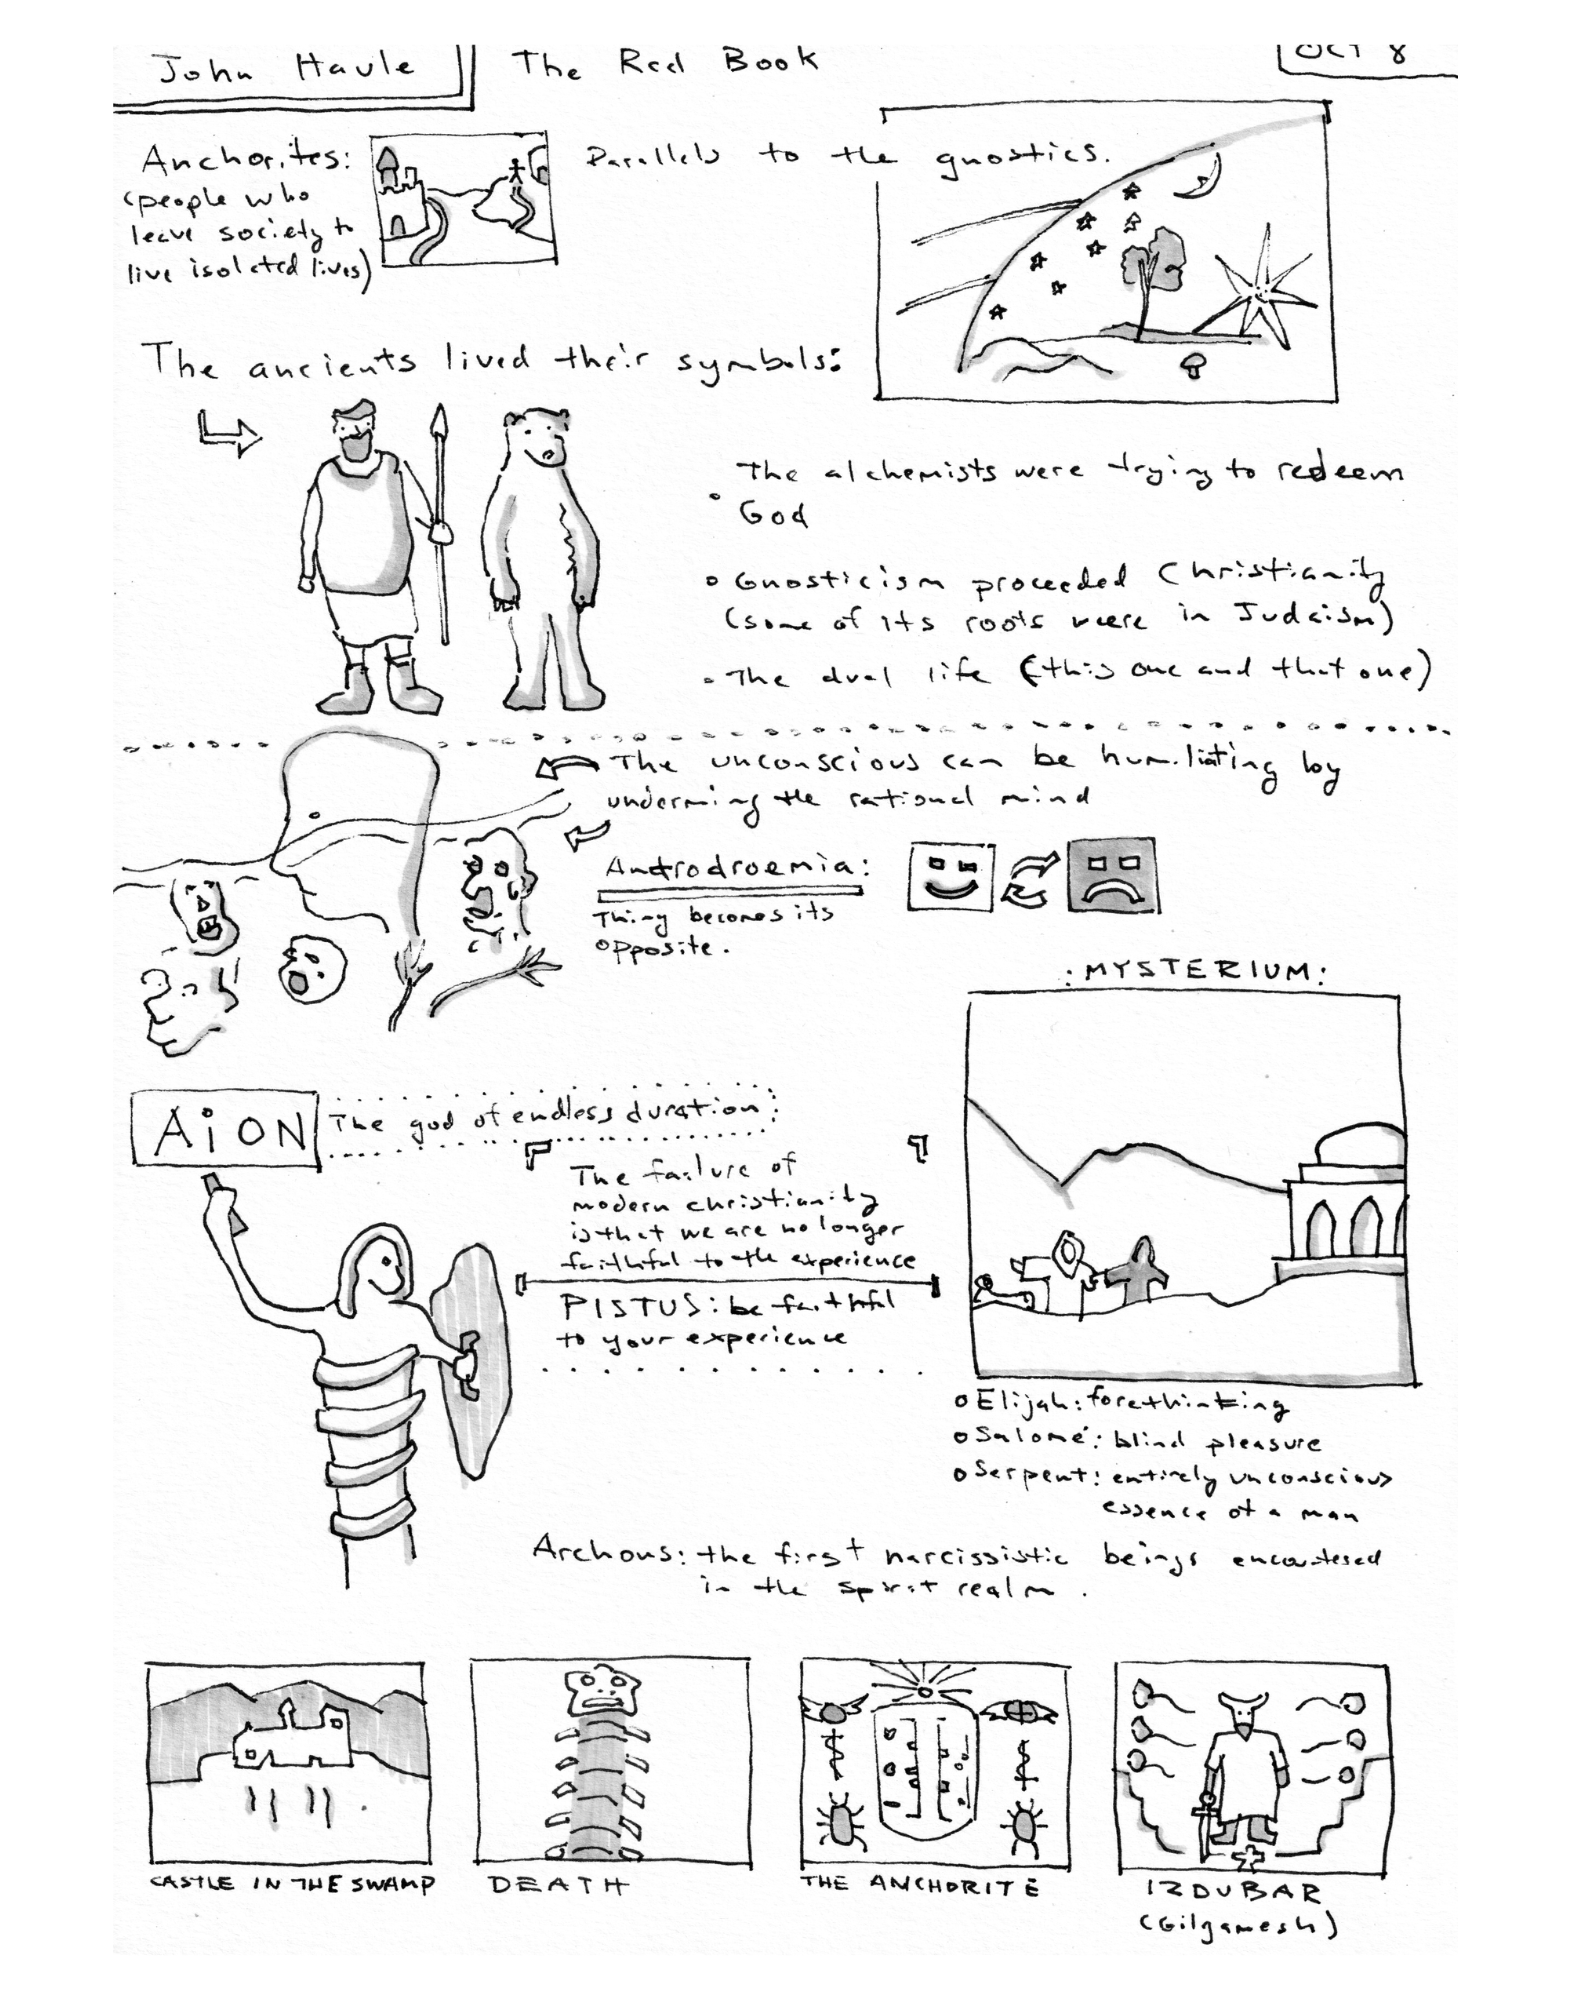 John Haule
The Red Book
OCT 8
Anchorites:
(people who
leave society to
live isolated lives)
Parallels to the gnostics.
The ancients lived their symbols:
The alchemists were trying to redeem
God
Gnosticism proceeded Christianity
(some of its roots were in Judaism)
The dual life (this one and that one)
The unconscious can be humiliating by
underming the rational mind
Androdroemia:
Thing becomes its
opposite.
:MYSTERIUM:
AiON
The god of endless duration
The failure of
modern christianity
is that we are no longer
faithful to the experience
PISTUS: be faithful
to your experience
Elijah: forethinking
Salomé: blind pleasure
Serpent: entirely unconscious
essence of a man
Archons: the first narcissistic beings encountered
in the spirit realm.
CASTLE IN THE SWAMP
DEATH
THE ANCHORITE
IZDUBAR
(Gilgamesh)